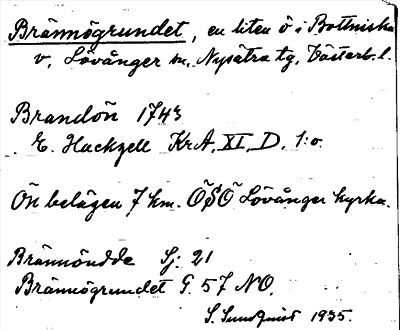 Brännögrundet, en liten ö i Bottniska
v, Lövånger sn, Nysätra tg, Västerb. l.
Brandön 1743
E. Hackzell KrA, XI, D, 1:o.
Ön belägen 7 km. ÖSÖ Lövånger kyrka.
Brännöudde Sj: 21
Brännögrundet G. 57 NO.
S. Sundquist 1935.